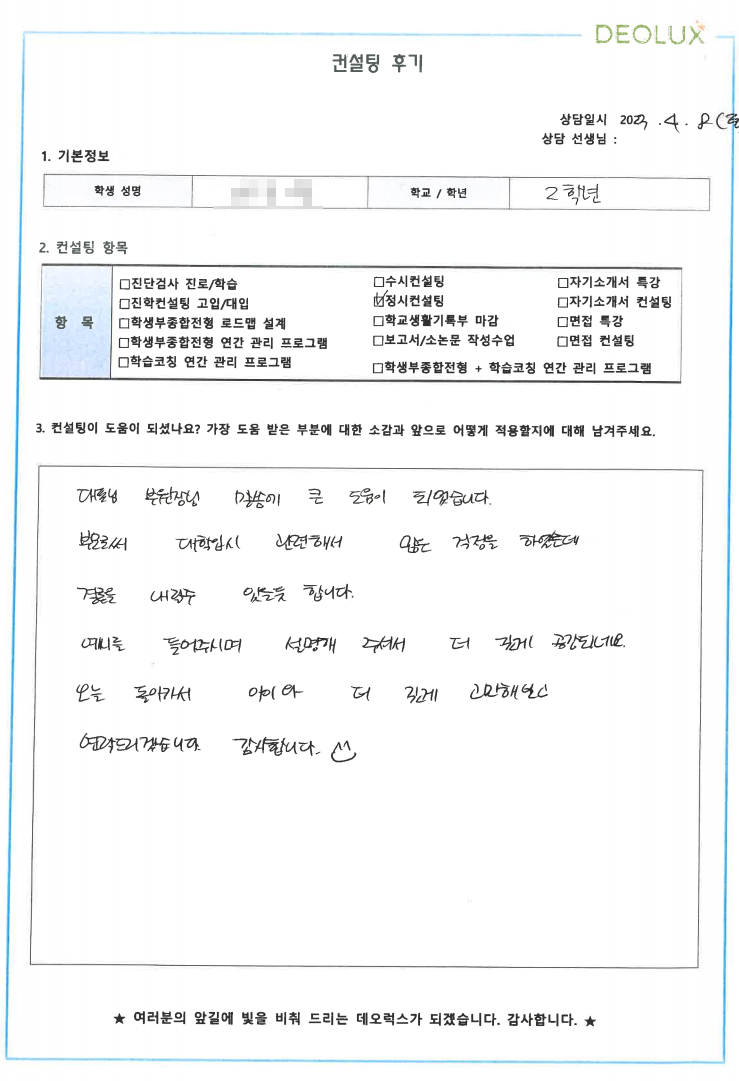 DEOLUX
컨설팅 후기
상담일시 2023 . 4 . 8 (토
상담 선생님 :
1. 기본정보
학생 성명
학교 / 학년
2학년
2. 컨설팅 항목
항 목
□진단검사 진로/학습
□수시컨설팅
□자기소개서 특강
□진학컨설팅 고입/대입
☑정시컨설팅
□자기소개서 컨설팅
□학생부종합전형 로드맵 설계
□학교생활기록부 마감
□면접 특강
□학생부종합전형 연간 관리 프로그램
□보고서/소논문 작성수업
□면접 컨설팅
□학습코칭 연간 관리 프로그램
□학생부종합전형 + 학습코칭 연간 관리 프로그램
3. 컨설팅이 도움이 되셨나요? 가장 도움 받은 부분에 대한 소감과 앞으로 어떻게 적용할지에 대해 남겨주세요.
대표님 부원장님 말씀이 큰 도움이 되었습니다.
부모로써 대학입시 관련해서 많은 걱정을 하였는데
결론을 내릴수 있을듯 합니다.
예시를 들어주시며 설명해 주셔서 더 깊게 공감되네요.
오늘 돌아가서 아이와 더 깊게 고민해보고
연락드리겠습니다. 감사합니다.
★ 여러분의 앞길에 빛을 비춰 드리는 데오럭스가 되겠습니다. 감사합니다. ★